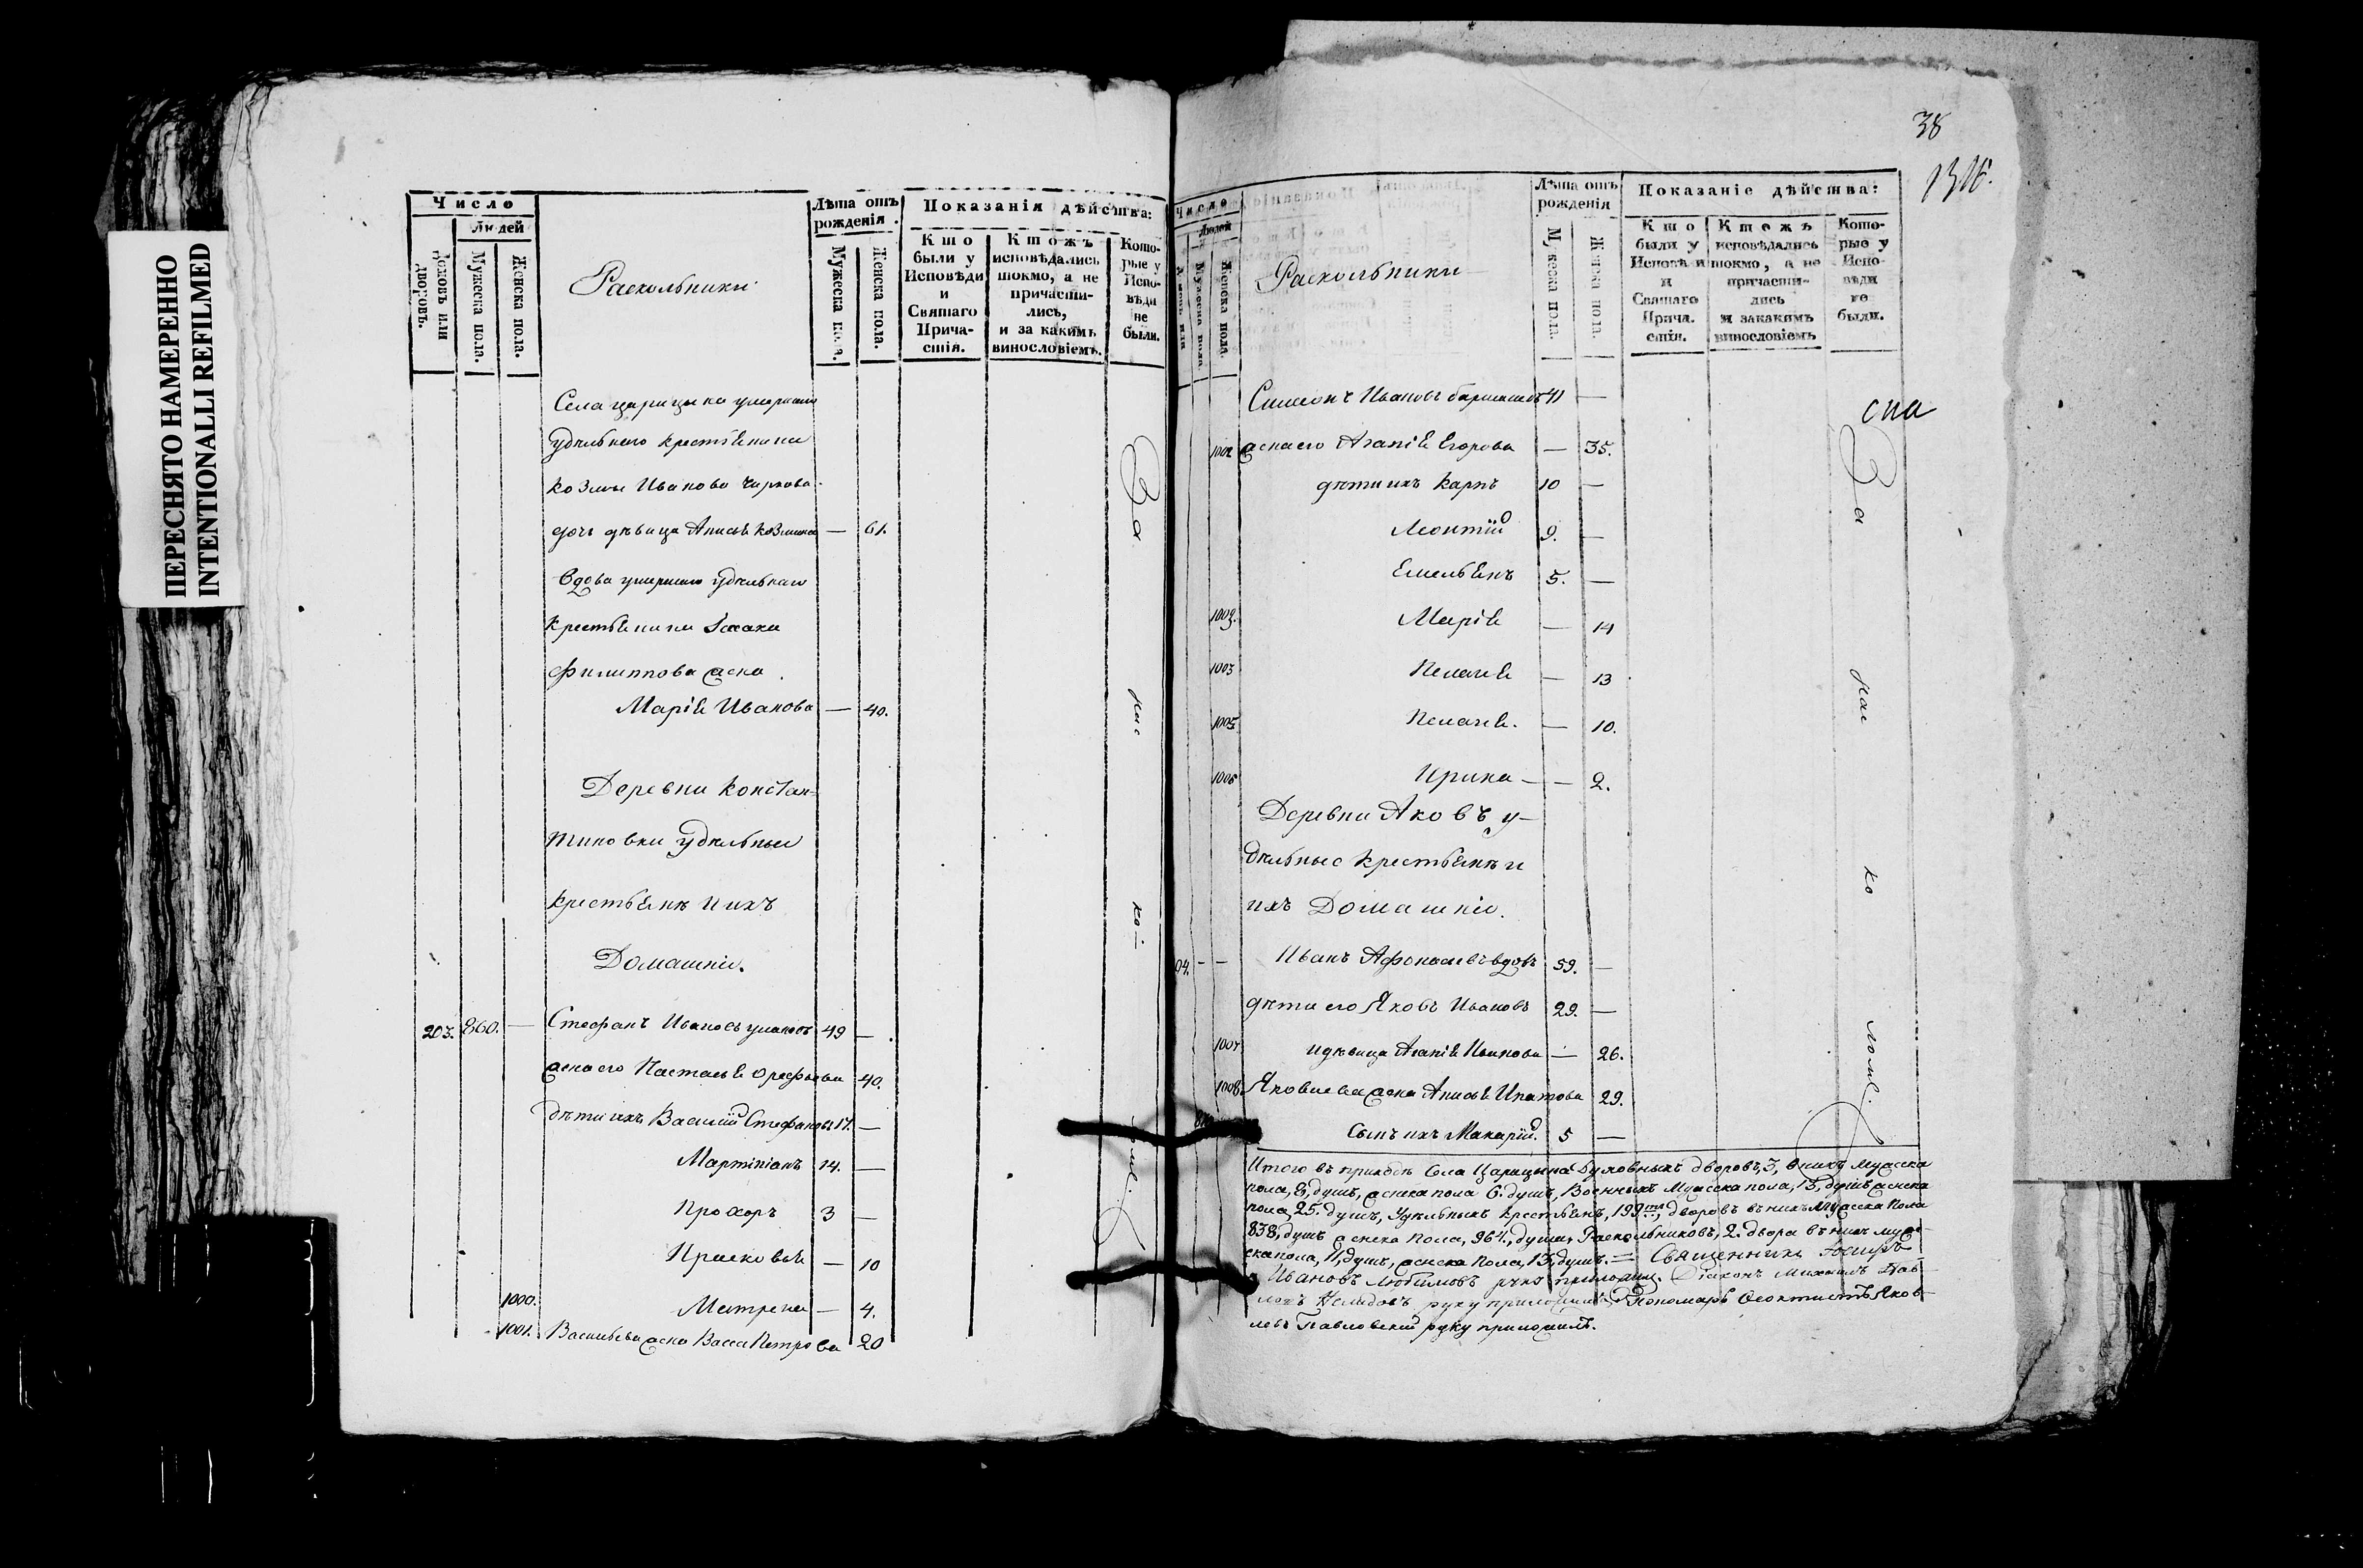 ПЕРЕСНЯТО НАМЕРЕННО
INTENTIONALLI REFILMED
Число
Людей
Домовъ или дворовъ.
Мужеска пола.
Женска пола.
Раскольники
Лѣта отъ рожденія.
Мужеска пола.
Женска пола.
Показанія дѣйства:
Кто были у Исповѣди и Святаго Причастія.
Ктожъ исповѣдались токмо, а не причастились, и за какимъ винословіемъ.
Которые у Исповѣди не были.
Села царицына умершаго
удѣльнаго крестьянина
Козмы Иванова
дочь дѣвица Анисья Козмина — 61.
Вдова умершаго удѣльнаго
крестьянина Исаака
Филиппова жена
Марія Иванова — 40.
Деревни Констан-
тиновки удѣльныя
крестьяне и ихъ
Домашніи.
203. 860. — Стефанъ Ивановъ 49 —
жена его Настасья Орефьева 40.
дѣти ихъ Василій Стефановъ 17. —
Мартиніанъ 14. —
Прохоръ 3 —
Прасковья — 10
1000. Матрена — 4.
1001. Васильева жена Васса Петрова 20
За
рас
ко
38
Число
Людей
Мужеска пола
Женска пола.
Раскольники
Лѣта отъ рожденія
Мужеска пола.
Женска пола.
Показаніе дѣйства:
Кто были у Исповѣди и Святаго Причастія.
Ктожъ исповѣдались токмо, а не причастились и за какимъ винословіемъ
Которые у Исповѣди не были.
Симеонъ Ивановъ 41 —
1002 жена его Агапія Егорова — 35.
дѣти ихъ Карпъ 10 —
Леонтій 9. —
Емельянъ 5. —
Марія — 14
1003 Пелагея — 13
1005 Пелагея. — 10.
1006 Ирина — — 2.
Деревни Яковъ у-
дѣльные крестьяне и
ихъ Домашніи.
04. — — Иванъ Афонасьевъ вдовъ 59. —
дѣти его Яковъ Ивановъ 29. —
1007 и дѣвица Агапія Иванова — 26.
1008 Яковлева жена Анисья Ипатова 29.
сынъ ихъ Макарій. 5 —
За
рас
ко
ломъ.
Итого въ приходѣ Села Царицына Духовныхъ дворовъ, 3, въ нихъ мужеска
пола, 8, душъ, женска пола 6. душъ, Военныхъ Мужеска пола, 13, душъ женска
пола, 25. душъ, Удѣльныхъ крестьянъ, 199ть, дворовъ въ нихъ Мужеска Пола
838, душъ женска Пола, 964, души, Раскольниковъ, 2. двора въ нихъ муже-
ска пола, 11, душъ, женска Пола, 13, душъ. = Священникъ
Ивановъ Любимовъ руку приложилъ. Діаконъ Михаилъ Пав-
ловъ руку приложилъ. Пономарь Феоктистъ Яков-
левъ Павловскій руку приложилъ.